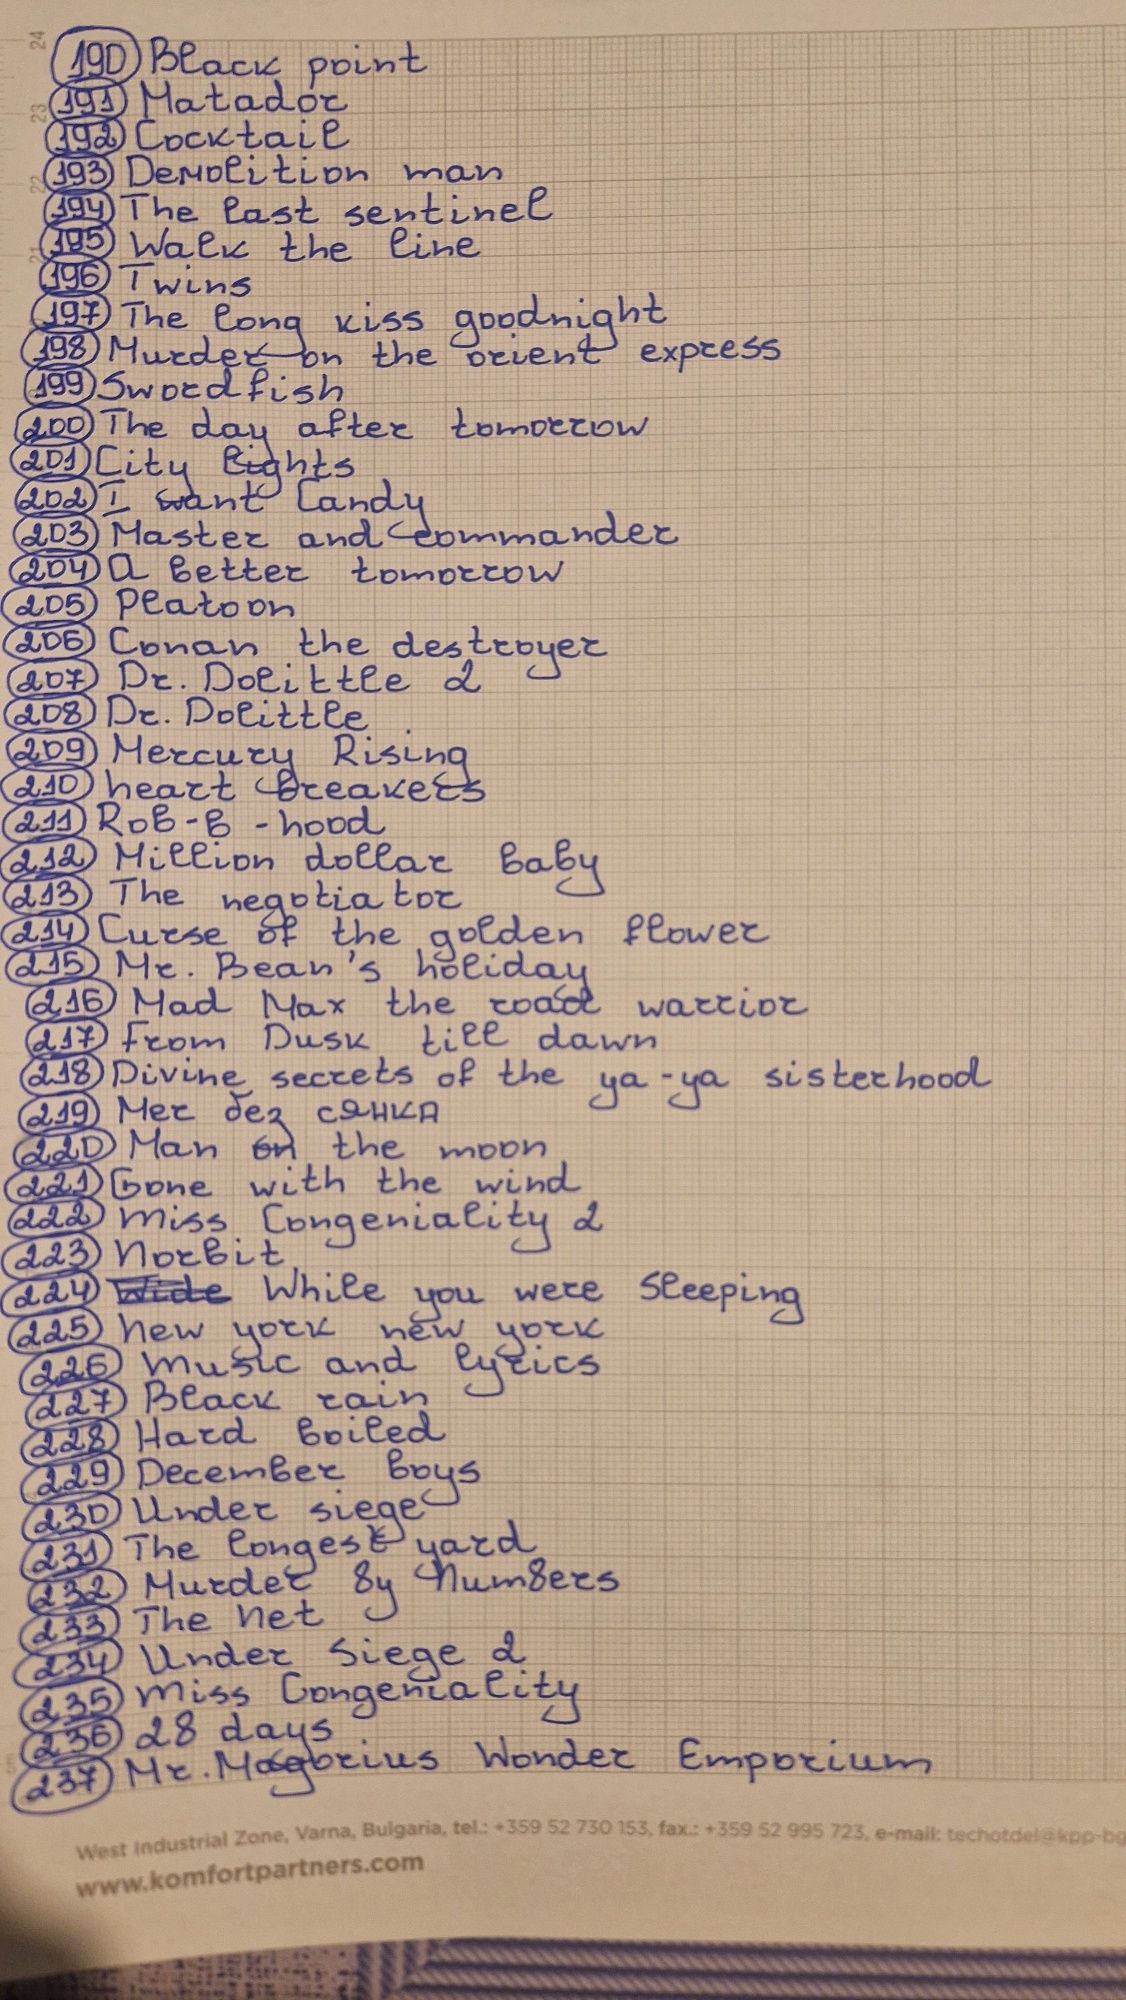 24
190 Black point
23
191 Matador
192 Cocktail
22
193 Demolition man
194 The last sentinel
195 Walk the line
196 Twins
197 The long kiss goodnight
198 Murder on the orient express
199 Swordfish
200 The day after tomorrow
201 City lights
202 I want Candy
203 Master and commander
204 A better tomorrow
205 Platoon
206 Conan the destroyer
207 Dr. Dolittle 2
208 Dr. Dolittle
209 Mercury Rising
210 heart breakers
211 Rob-B-hood
212 Million dollar baby
213 The negotiator
214 Curse of the golden flower
215 Mr. Bean's holiday
216 Mad Max the road warrior
217 From Dusk till dawn
218 Divine secrets of the ya-ya sisterhood
219 Меч без сянка
220 Man on the moon
221 Gone with the wind
222 Miss Congeniality 2
223 Norbit
224 While you were Sleeping
225 New york new york
226 Music and lyrics
227 Black rain
228 Hard boiled
229 December boys
230 Under siege
231 The longest yard
232 Murder by Numbers
233 The Net
234 Under Siege 2
235 Miss Congeniality
236 28 days
237 Mr. Magorius Wonder Emporium
West Industrial Zone, Varna, Bulgaria, tel.: +359 52 730 153, fax.: +359 52 995 723, e-mail: techotdel@kpp-bg
www.komfortpartners.com